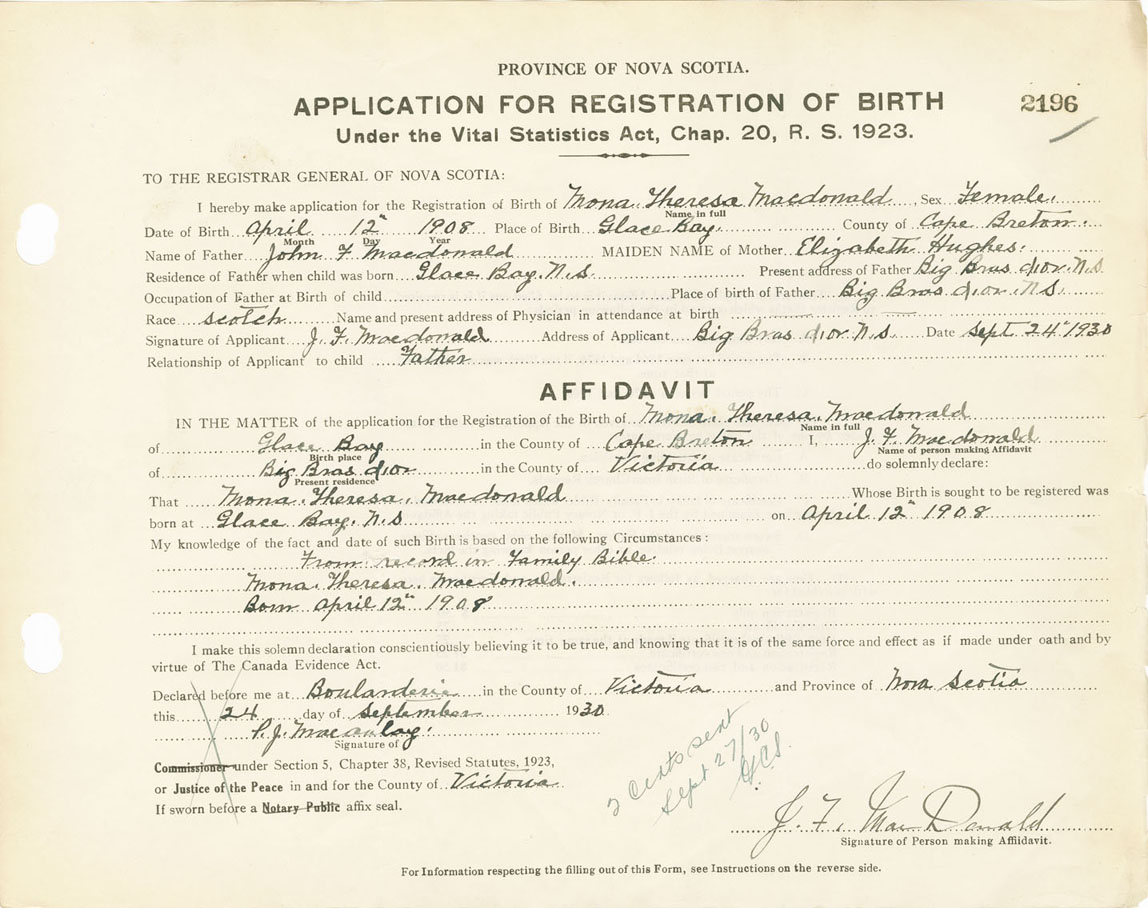 PROVINCE OF NOVA SCOTIA.
APPLICATION FOR REGISTRATION OF BIRTH 2196
Under the Vital Statistics Act, Chap. 20, R. S. 1923.
TO THE REGISTRAR GENERAL OF NOVA SCOTIA:
I hereby make application for the Registration of Birth of Mona Theresa Macdonald Sex Female.
Name in full
Date of Birth April 12th 1908 Place of Birth Glace Bay. County of Cape Breton.
Month Day Year
Name of Father John F Macdonald MAIDEN NAME of Mother Elizabeth Hughes.
Residence of Father when child was born Glace Bay. N.S Present address of Father Big Bras d'or. N.S.
Occupation of Father at Birth of child Place of birth of Father Big Bras d'or. N.S.
Race Scotch Name and present address of Physician in attendance at birth
Signature of Applicant J. F. Macdonald Address of Applicant Big Bras d'or N.S Date Sept 24th 1930
Relationship of Applicant to child Father
AFFIDAVIT
IN THE MATTER of the application for the Registration of the Birth of Mona. Theresa. Macdonald
Name in full
of Glace Bay in the County of Cape Breton I, J. F. Macdonald
Birth place Name of person making Affidavit
of Big Bras d'or in the County of Victoria do solemnly declare:
Present residence
That Mona. Theresa. Macdonald Whose Birth is sought to be registered was
born at Glace Bay. N.S on April 12th 1908
My knowledge of the fact and date of such Birth is based on the following Circumstances:
From record in Family Bible.
Mona. Theresa. Macdonald.
Born April 12th 1908
I make this solemn declaration conscientiously believing it to be true, and knowing that it is of the same force and effect as if made under oath and by
virtue of The Canada Evidence Act.
Declared before me at Boularderie in the County of Victoria and Province of Nova Scotia
this 24 day of September 1930
P. J. Macaulay.
Signature of
Commissioner under Section 5, Chapter 38, Revised Statutes, 1923,
or Justice of the Peace in and for the County of Victoria.
If sworn before a Notary Public affix seal.
2 cents sent
Sept 27/30
J. F. MacDonald
Signature of Person making Affidavit.
For Information respecting the filling out of this Form, see Instructions on the reverse side.